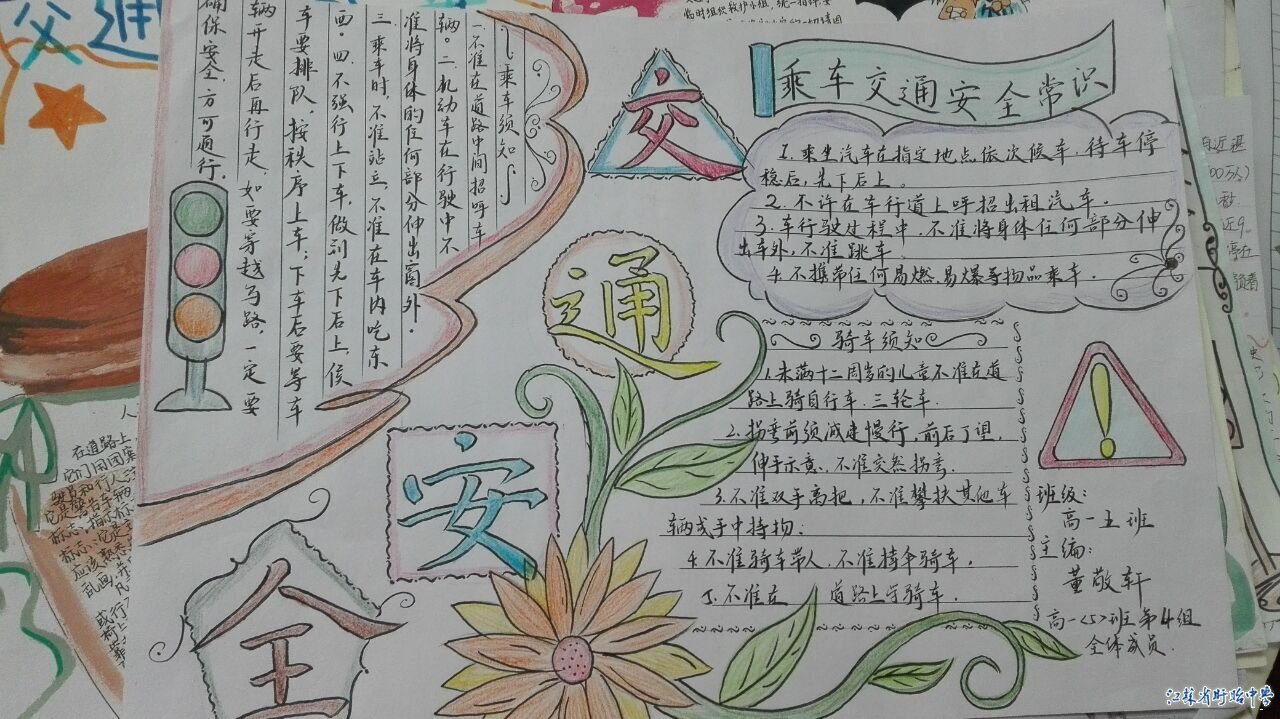 交
通
安
全
乘车交通安全常识
1.乘坐汽车在指定地点依次候车,待车停
稳后,先下后上。
2.不许在车行道上呼招出租汽车.
3.车行驶过程中,不准将身体任何部分伸
出车外,不准跳车.
4.不携带任何易燃,易爆等物品乘车.
骑车须知
1.未满十二周岁的儿童不准在道
路上骑自行车.三轮车.
2.拐弯前须减速慢行,前后了望,
伸手示意,不准突然拐弯.
3.不准双手离把,不准攀扶其他车
辆或手中持物;
4.不准骑车带人,不准撑伞骑车,
5.不准在 道路上学骑车.
乘车须知
一.不准在道路中间招呼车
辆。二.机动车在行驶中不
准将身体的任何部分伸出窗外.
三.乘车时,不准站立,不准在车内吃东
四.四.不强行上下车,做到先下后上,候
车要排队,按秩序上车;下车后要等车
辆开走后再行走,如要穿越马路,一定要
确保安全,方可通行.
班级:
高一五班
主编:
董敬轩
高一<5>班第4组
全体成员
交通
在道路上
江苏省盱眙中学